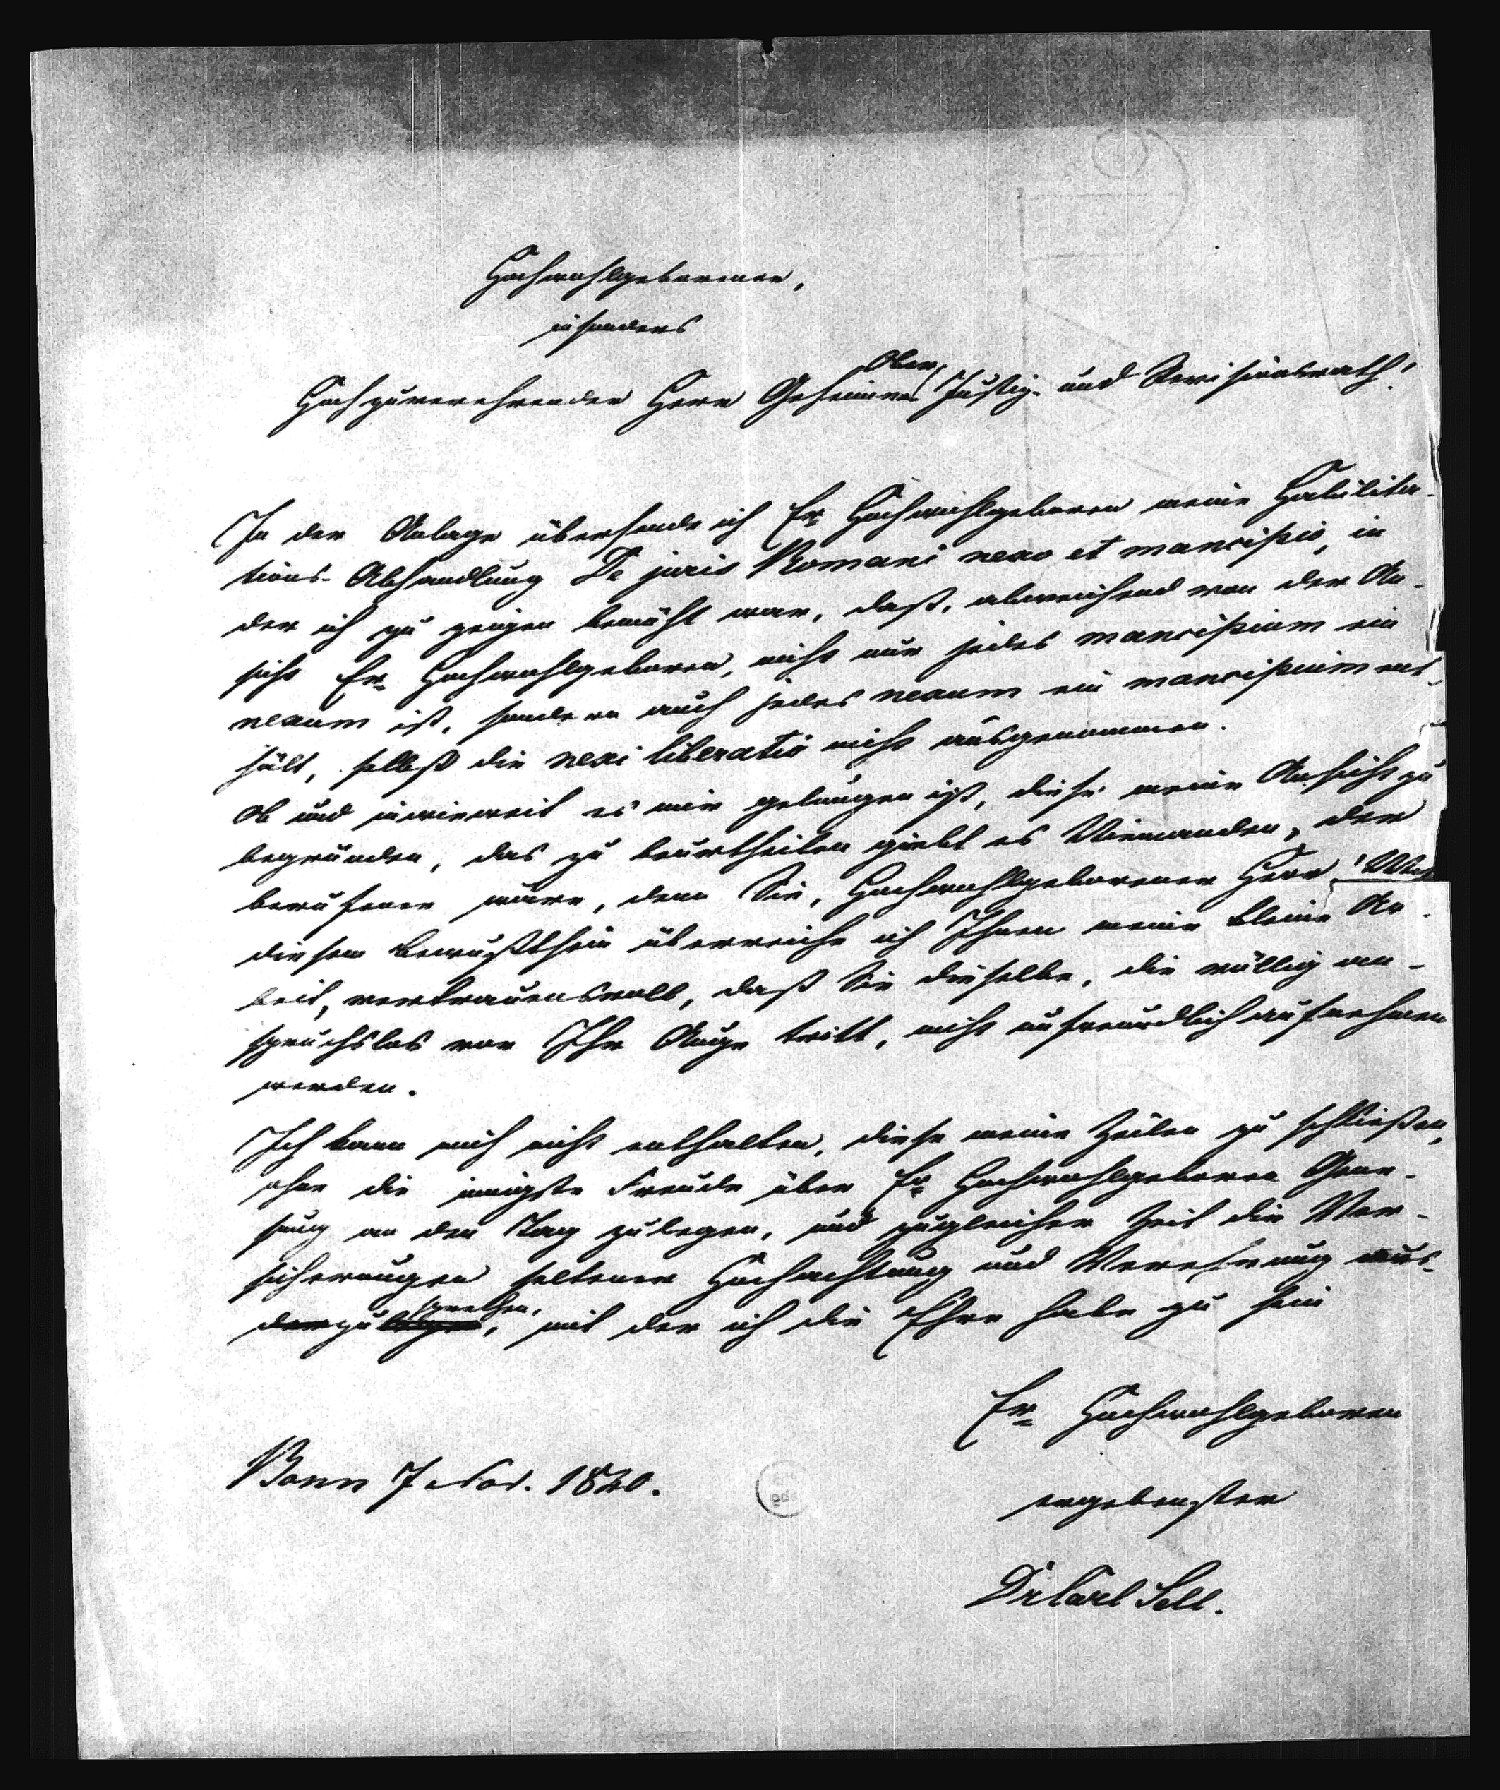 Hochwohlgeborener,
insonders
Hochzuverehrender Herr Geheimer Ober Justiz- und Revisionsrath!
In der Anlage übersende ich Ew. Hochwohlgeboren meine Habilita-
tions-Abhandlung De juris Romani nexo et mancipio, in
der ich zu zeigen bemüht war, daß, abweichend von der An-
sicht Ew. Hochwohlgeboren, nicht nur jedes mancipium ein
nexum ist, sondern auch jedes nexum ein mancipium ent-
hält, selbst die nexi liberatio nicht ausgenommen.
Ob und inwieweit es mir gelungen ist, diese meine Ansicht zu
begründen, das zu beurtheilen giebt es Niemanden, der
berufener wäre, denn Sie, Hochwohlgeborener Herr!
diesem Bewußtsein überreiche ich Ihnen meine kleine Ar-
beit, vertrauensvoll, daß Sie dieselbe, die völlig an-
spruchslos vor Ihr Auge tritt, nicht unfreundlich aufnehmen
werden.
Ich kann mich nicht enthalten, diese meine Zeilen zu schließen,
ohne die innigste Freude über Ew. Hochwohlgeboren Gene-
sung an den Tag zu legen, und zugleicher Zeit die Ver-
sicherungen seltener Hochachtung und Verehrung aus-
zusprechen, mit der ich die Ehre habe zu sein
Ew. Hochwohlgeboren
Bonn 7 Nov. 1840.
ergebenster
Dr Carl Sell.